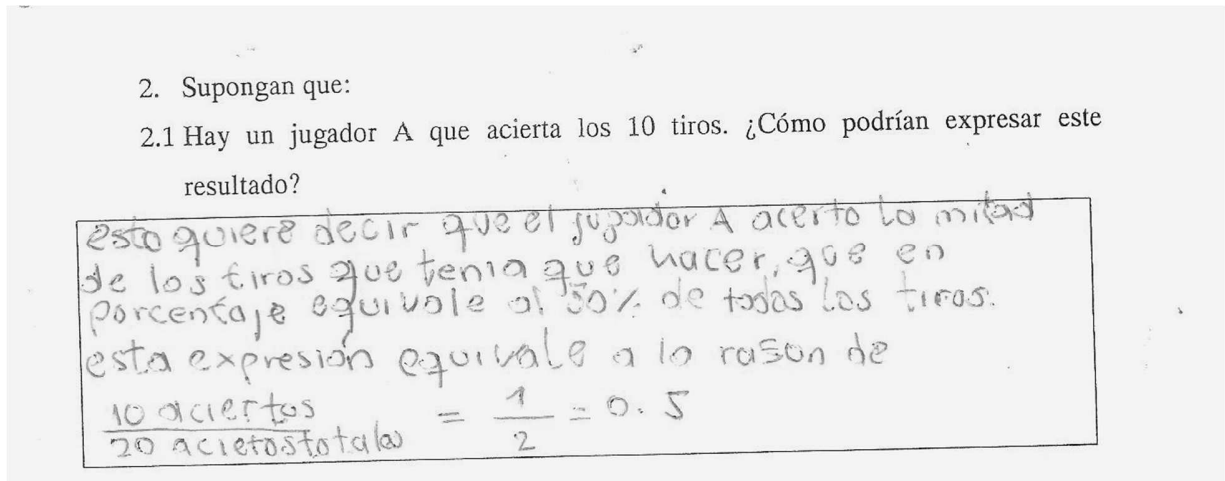 2. Supongan que:
2.1 Hay un jugador A que acierta los 10 tiros. ¿Cómo podrían expresar este
resultado?
esto quiere decir que el jugador A acerto la mitad
de los tiros que tenia que hacer, que en
porcentaje equivale al 50% de todos los tiros.
esta expresión equivale a la rason de
10 aciertos / 20 acietos totales = 1/2 = 0.5